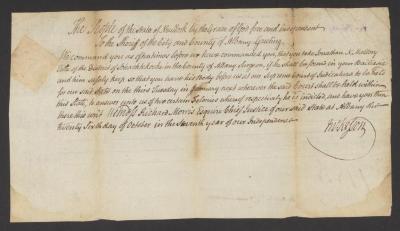 The People of the State of New York by the Grace of God free and independent
To the Sheriff of the City and County of Albany Greeting
We command you as oftentimes before we have commanded you, that you take Jonathan X. Mallory
late of the District of in the County of Albany Surgeon, if he shall be found in your Bailiwic
and him safely keep so that you have his Body before us at our Supreme Court of Judicature to be held
for our said State on the third Tuesday in January next wherever the said Court shall be held within
this State, to answer unto us of two certain Felonies whereof respectively he is indicted, and have you then
there this writ Witness Richard Morris Esquire Chief Justice of our said State at Albany the
twenty sixth day of October in the Seventh year of our Independence
McKesson